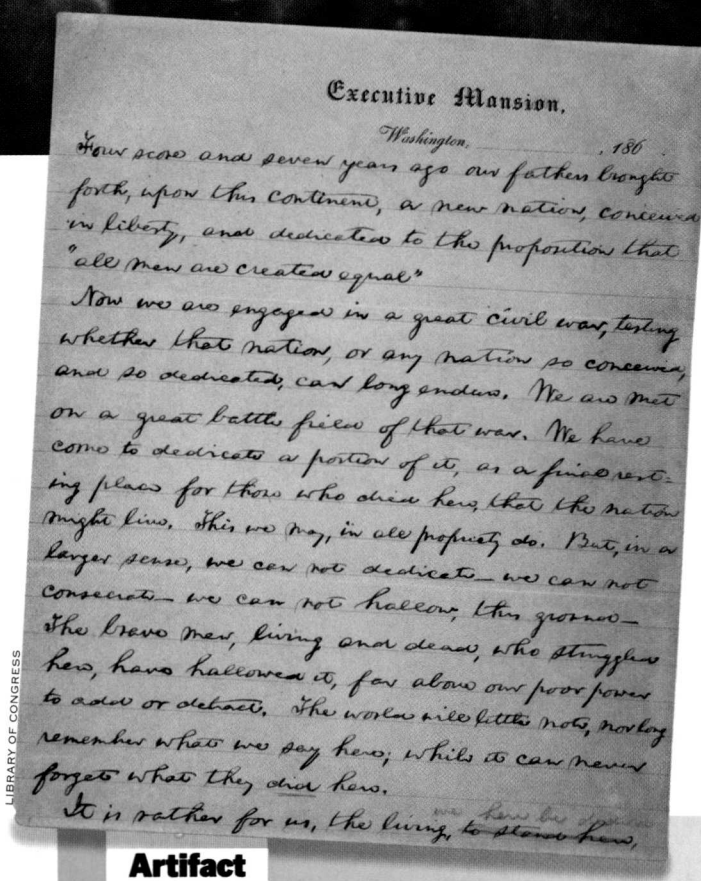 Executive Mansion,
Washington, , 186 .
Four score and seven years ago our fathers brought
forth, upon this continent, a new nation, conceived
in liberty, and dedicated to the proposition that
"all men are created equal"
Now we are engaged in a great civil war, testing
whether that nation, or any nation so conceived,
and so dedicated, can long endure. We are met
on a great battle field of that war. We have
come to dedicate a portion of it, as a final rest-
ing place for those who died here, that the nation
might live. This we may, in all propriety do. But, in a
larger sense, we can not dedicate — we can not
consecrate — we can not hallow, this ground —
The brave men, living and dead, who struggled
here, have hallowed it, far above our poor power
to add or detract. The world will little note, nor long
remember what we say here; while it can never
forget what they did here.
we here be
It is rather for us, the living, to stand here,
LIBRARY OF CONGRESS
Artifact